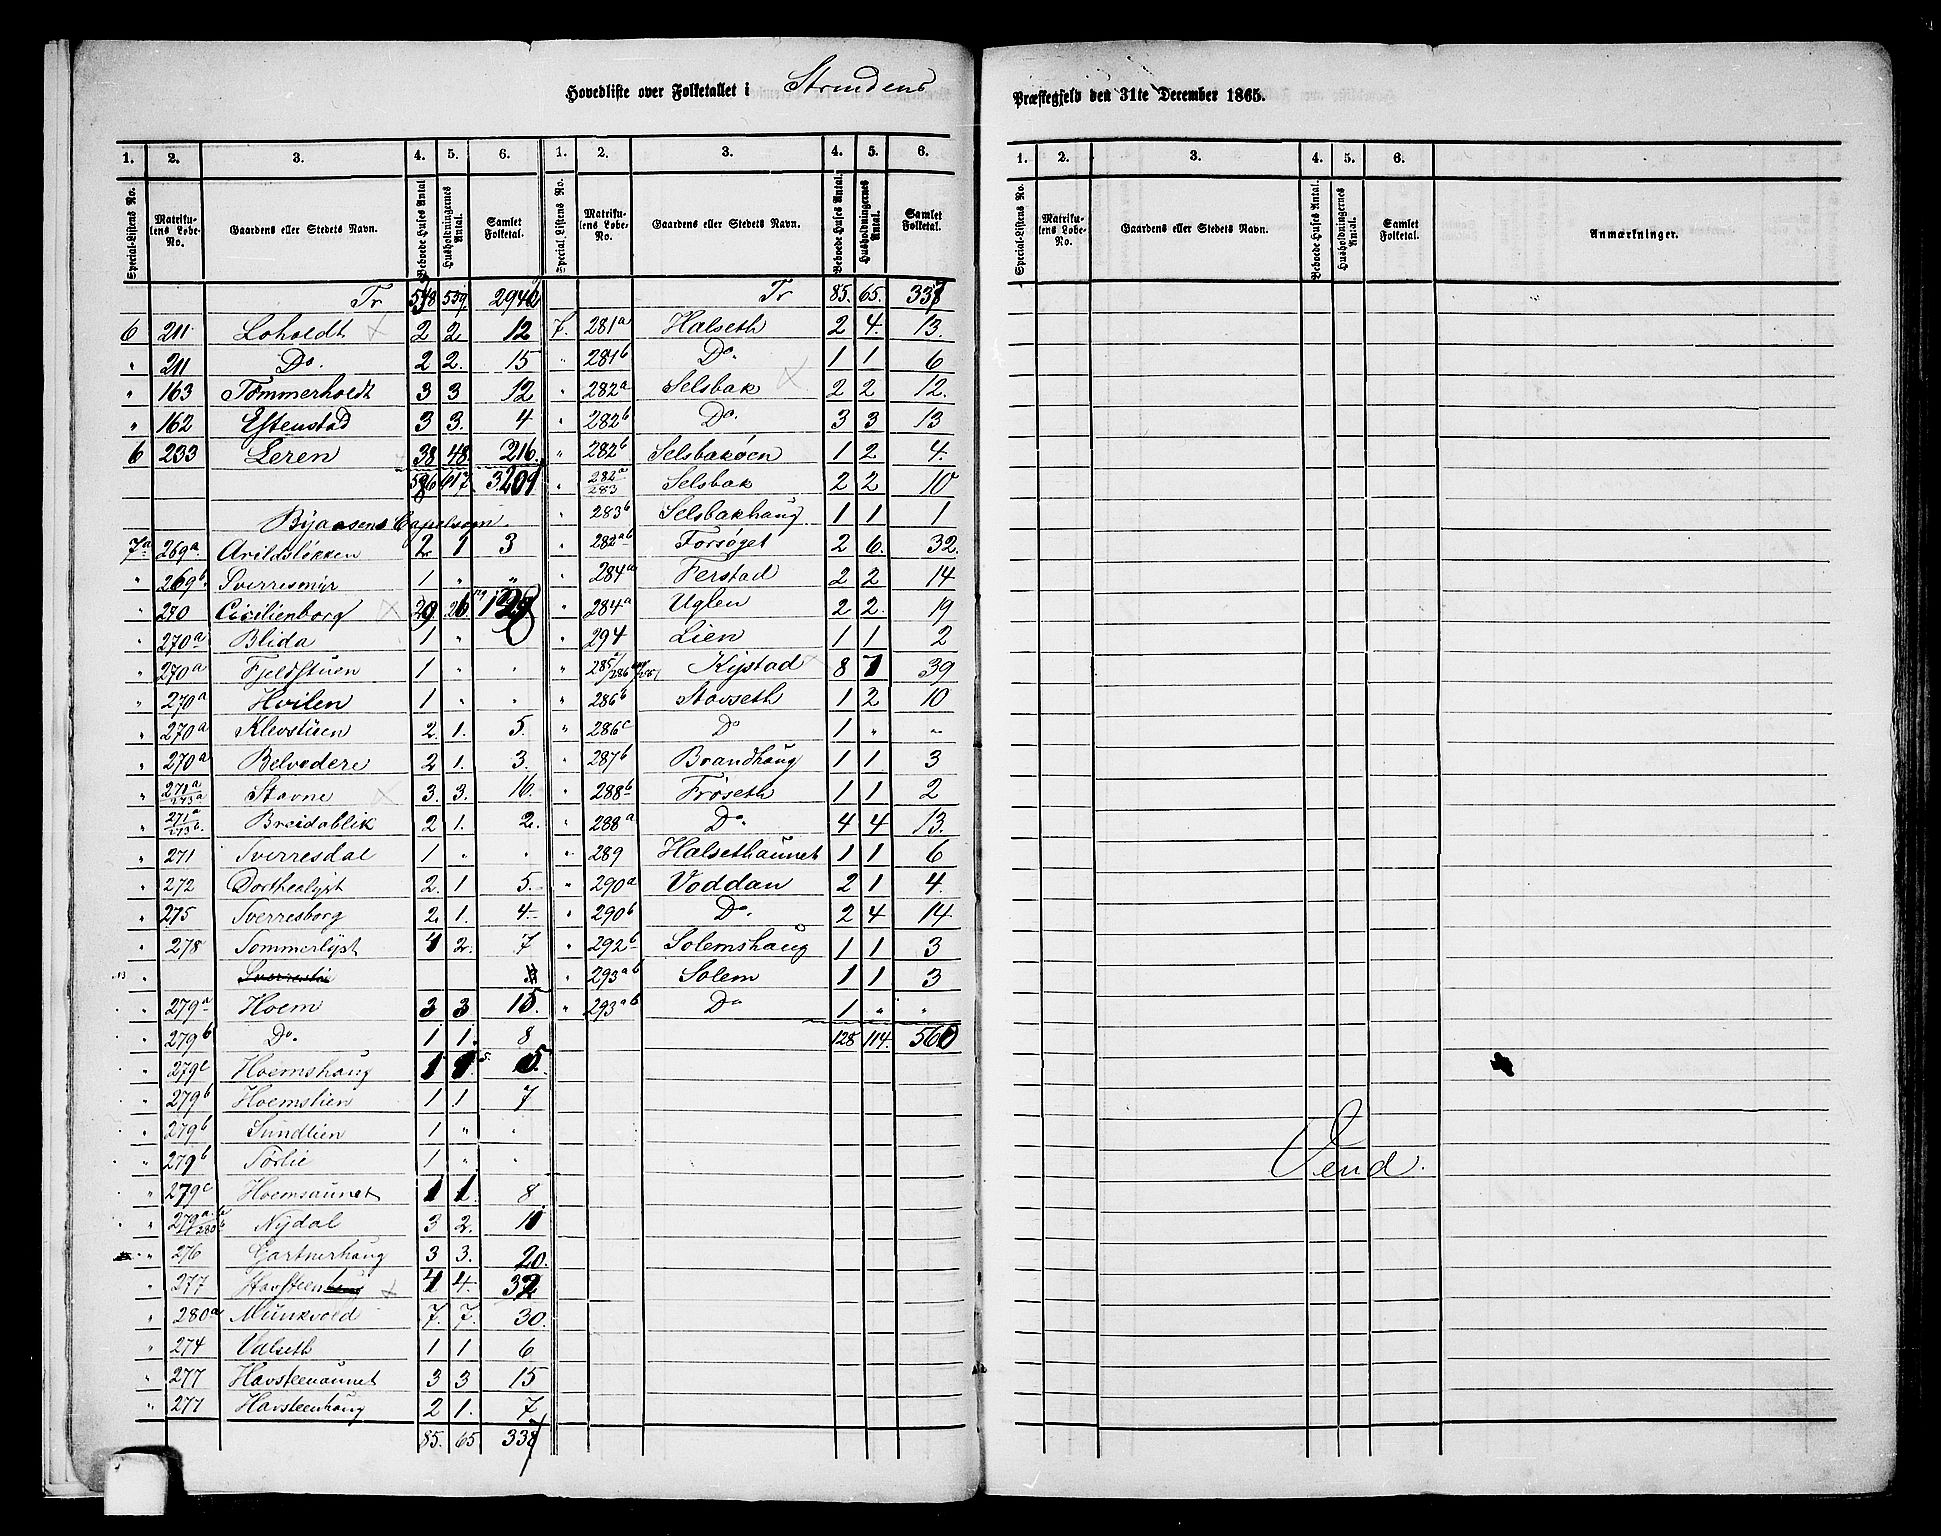 Hovedliste over Folketallet i Strindens Præstegjeld den 31te December 1865.
1. 2. 3. 4. 5. 6. 1. 2. 3. 4. 5. 6.
Special-Listens No. Matrikulens Løbe-No. Gaardens eller Stedets Navn. Beboede Huses Antal Husholdningernes Antal. Samlet Folketal. Special-Listens No. Matrikulens Løbe-No. Gaardens eller Stedets Navn. Beboede Huses Antal. Husholdningernes Antal. Samlet Folketal.
Tr 548 559 2942
6 211 Loholdt 2 2 12
" 211 Do. 2 2. 15
" 163 Tømmerholdt 3 3 12
" 162 Estenstad 3 3. 4
6 233 Leren 38 48. 216.
617. 3201
Byaasens Capelsogn
7a 269a. Arildsløkken 2 1 3
" 269b. Sverresmyr 1 " "
" 270 Cicilienborg 29 26
" 270a Blida 1 "
" 270a Fjeldstuen 1 " "
" 270a Hvilen 1 " "
" 270a Klevstuen 2. 1. 5.
" 270a Belvedere 2 1. 3.
" 271a/273a Stavne 3. 3. 16.
" 271a/273b. Breidablik 2 1. 2.
" 271 Sverresdal 1 " "
" 272 Dorthealyst 2. 1 5.
" 275 Sverresborg 2 1. 4
" 278 Sommerlyst 4 2. 7
" Sverreslie
" 279a Hoem 3 3 15.
" 279b Do. 1 1. 8
" 279c Hoemshaug 1 1 5.
" 279b Hoemslien 1 1 7
" 279b Sundlien 1 " "
" 279b Sørlie 1 " "
" 279c Hoemsaunet 1 1. 8
" Nydal 3 2. 11
" 276 Gartnerhaug 3 3. 20.
" 277 Havsteen 4 4. 32
" 280a Munkvold 7. 7. 30.
" 274 Valseth 1 1 6
" 277 Havsteenaunet 3 3 15
" 277 Havsteenhaug 2 1. 7
85. 65 338
Tr 85. 65. 337
7. 281a Halseth 2 4. 13.
" 281b Do. 1 1 6
" 282a Selsbak 2 2 12.
" 282b Do. 3 3 13
" 282b Selsbakøen 1 2 4.
" 282a/283 Selsbak 2 2 10
" 283b Selsbakhaug 1 1 1
" 282ab Forsøget 2 6. 32.
" 284a Ferstad 2 2 14
" 284a Uglen 2 2. 19
" 294 Lien 1 1 2
" Kystad 8 7 39
" 286b Stavseth 1 2 10
" 286c Do 1 " "
" 287b Brandhaug 1 1 3
" 288b Frøseth 1 1 2
" 288a Do. 4 4 13.
" 289 Halsethaunet 1 1 6
" 290a Voddan 2 1 4.
" 290b Do. 2 4 14
" 292b Solemshaug 1 1 3
" 293ab Solem 1 1 3
" 293ab Do 1 " "
128 114. 560
1. 2. 3. 4. 5. 6.
Special-Listens No. Matrikulens Løbe-No. Gaardens eller Stedets Navn. Beboede Huses Antal. Husholdningernes Antal. Samlet Folketal. Anmærkninger.
Vend.